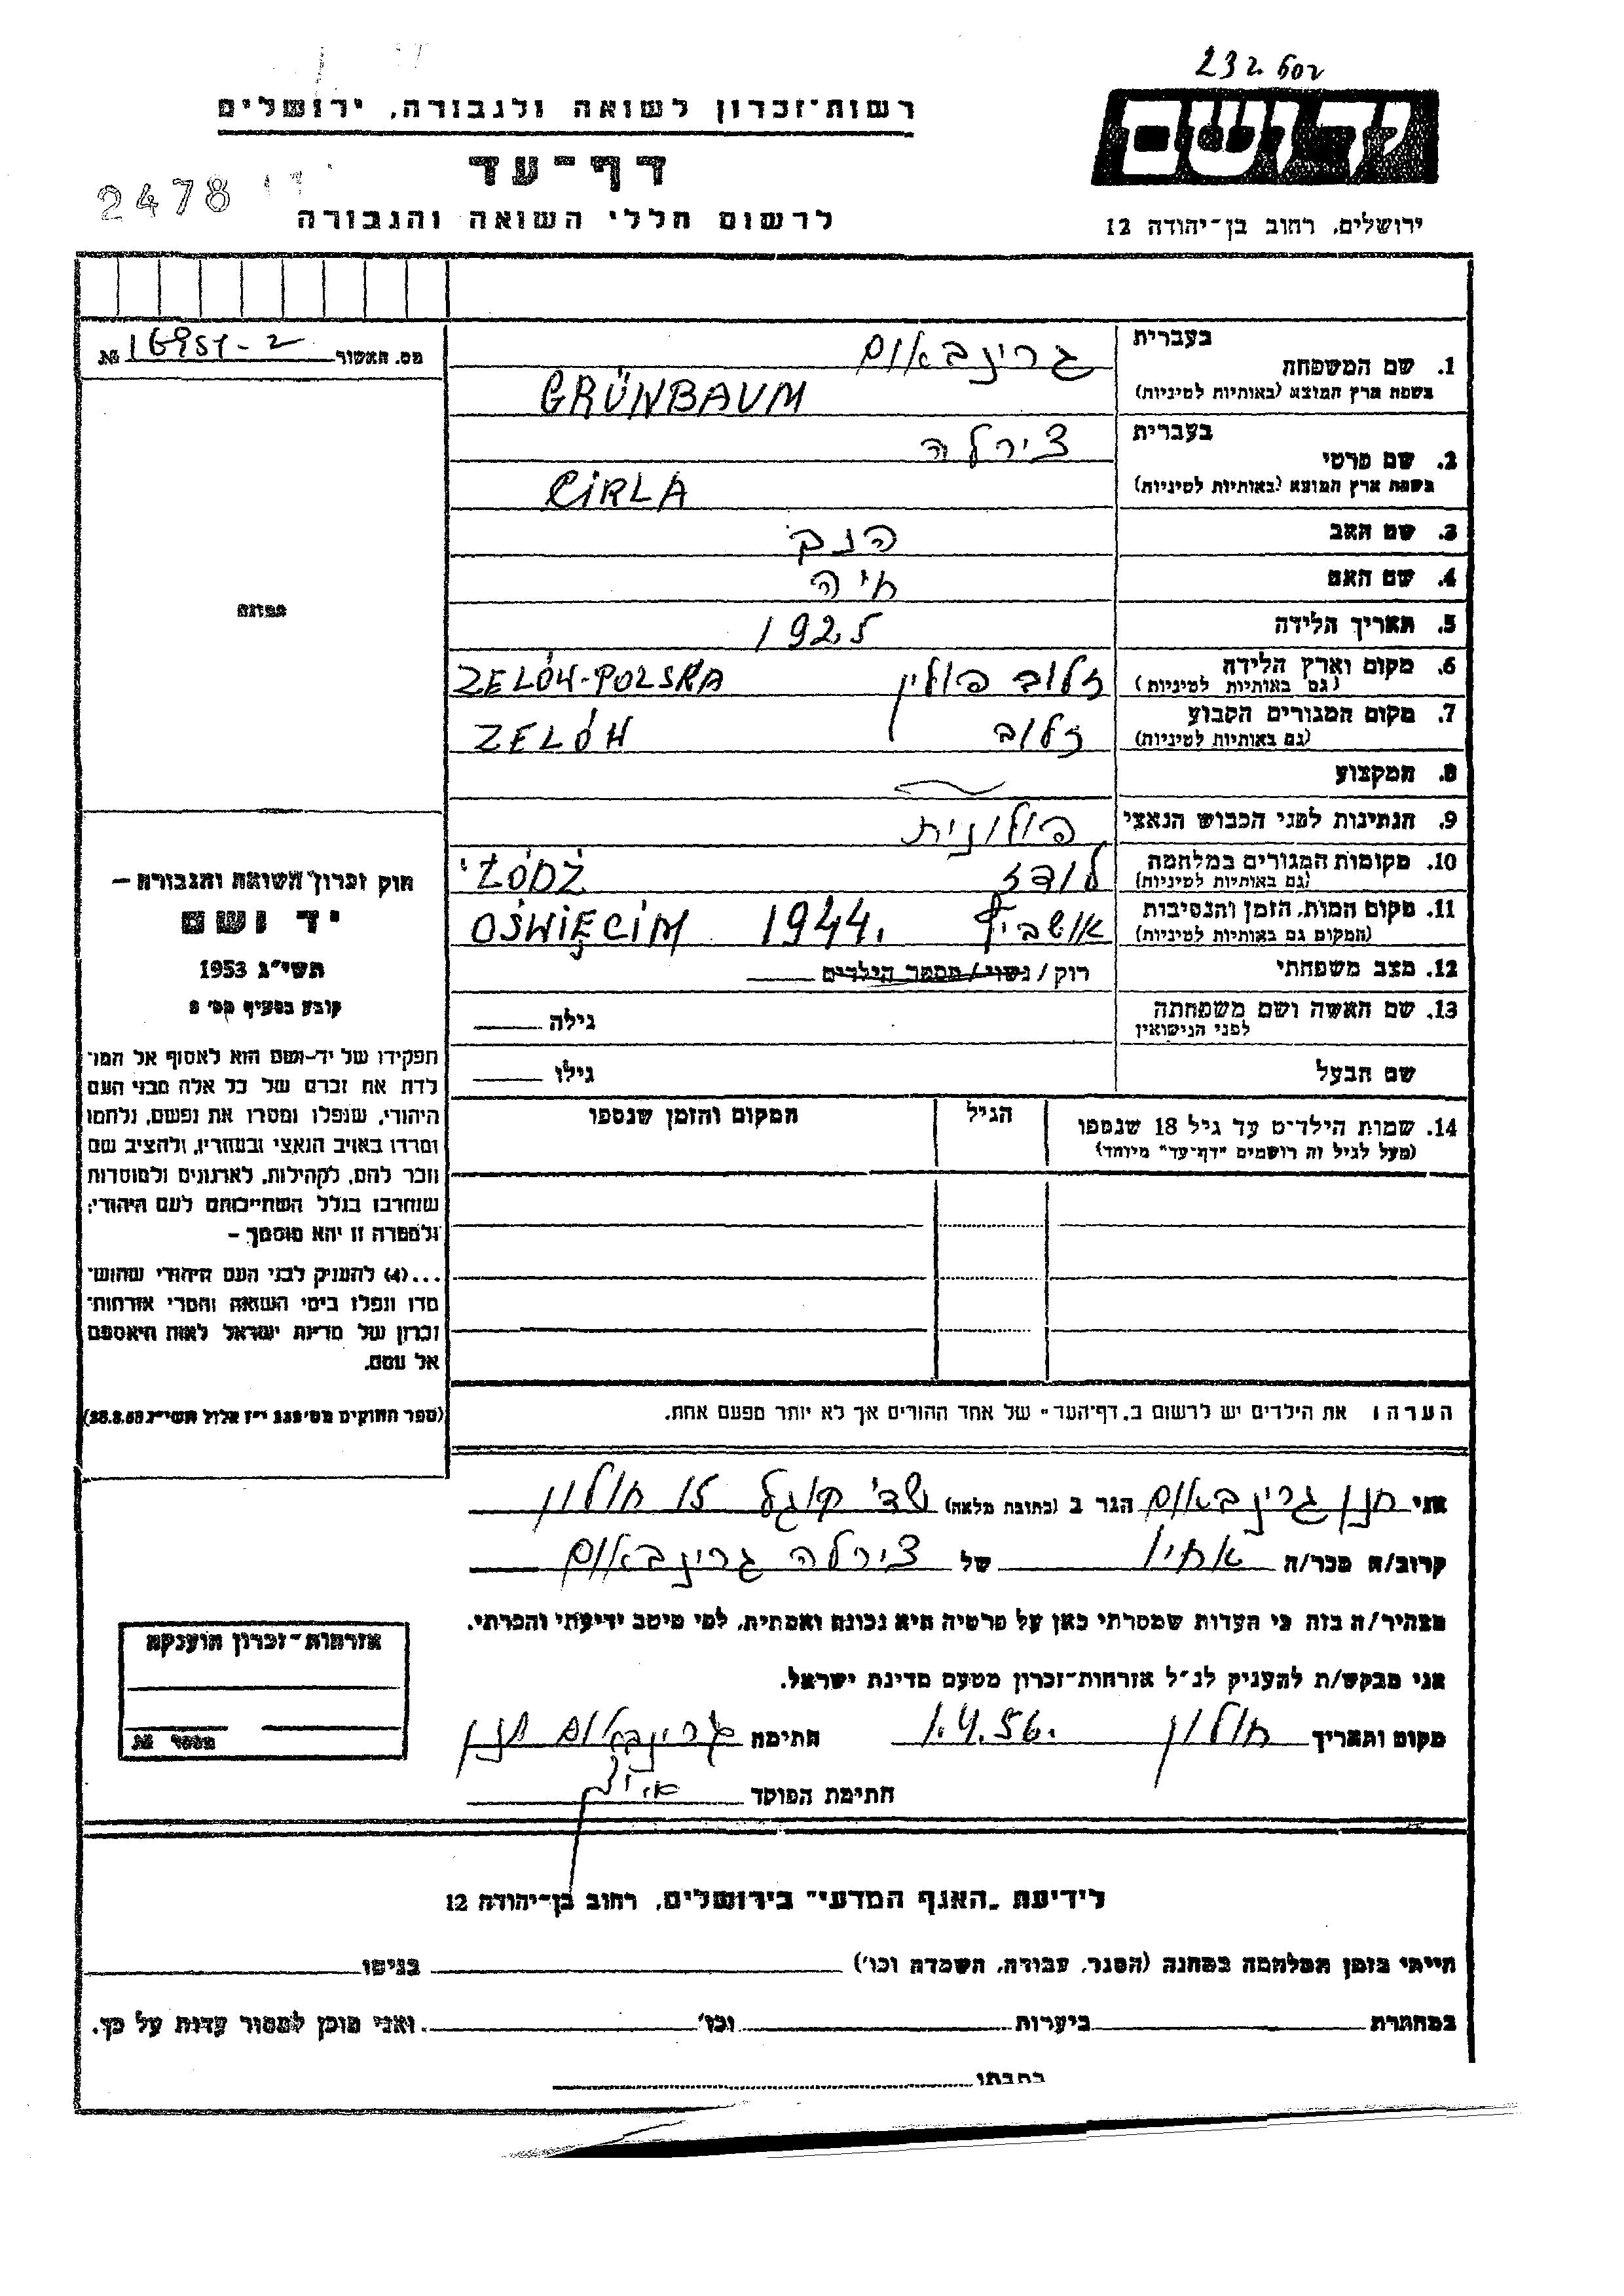 232602
רשות־זכרון לשואה ולגבורה, ירושלים
יד ושם
דף־עד
2478
לרשום חללי השואה והגבורה
ירושלים, רחוב בן־יהודה 12
מס. האשור 16951-2 №
תמונה
בעברית
1. שם המשפחה גרינבאום
בשפת ארץ המוצא (באותיות לטיניות) GRÜNBAUM
בעברית
2. שם פרטי צירלה
בשפת ארץ המוצא (באותיות לטיניות) CIRLA
3. שם האב
4. שם האם חיה
5. תאריך הלידה 1925
6. מקום וארץ הלידה זלוב פולין ZELÓW-POLSKA
(גם באותיות לטיניות)
7. מקום המגורים הקבוע זלוב ZELÓW
(גם באותיות לטיניות)
8. המקצוע
9. הנתינות לפני הכבוש הנאצי פולונית
10. מקומות המגורים במלחמה לודז ŁÓDŹ
(גם באותיות לטיניות)
11. מקום המות, הזמן והנסיבות 1944. OŚWIĘCIM
(המקום גם באותיות לטיניות)
12. מצב משפחתי רוק / נשוי / מספר הילדים
13. שם האשה ושם משפחתה גילה
לפני הנישואין
שם הבעל גילו
14. שמות הילדים עד גיל 18 שנספו הגיל המקום והזמן שנספו
(מעל לגיל זה רושמים "דף־עד" מיוחד)
חוק זכרון השואה והגבורה —
יד ושם
תשי"ג 1953
קובע בסעיף מס' 2
תפקידו של יד-ושם הוא לאסוף אל המו־
לדת את זכרם של כל אלה מבני העם
היהודי, שנפלו ומסרו את נפשם, נלחמו
ומרדו באויב הנאצי ובעוזריו, ולהציב שם
וזכר להם, לקהילות, לארגונים ולמוסדות
שנחרבו בגלל השתייכותם לעם היהודי;
ולמטרה זו יהא מוסמך —
...(4) להעניק לבני העם היהודי שהוש־
מדו ונפלו בימי השואה והמרי אזרחות־
זכרון של מדינת ישראל לאות היאספם
אל עמם.
(ספר החוקים מס' 132 י"ז אלול תשי"ג 28.8.53)
הערה: את הילדים יש לרשום ב„דף־העד" של אחד ההורים אך לא יותר מפעם אחת.
אני חנן גרינבאום הגר ב (כתובת מלאה) שד' קוגל 15 חולון
קרוב/ה מכר/ה אחיו של צירלה גרינבאום
מצהיר/ה בזה כי העדות שמסרתי כאן על פרטיה היא נכונה ואמתית, לפי מיטב ידיעתי והכרתי.
אני מבקש/ת להעניק לנ"ל אזרחות־זכרון מטעם מדינת ישראל.
מקום ותאריך חולון 1.4.56. חתימה גרינבאום חנן
חתימת הפוקד
אזרחות־זכרון הוענקה
מספר №
לידיעת „האגף המדעי" בירושלים, רחוב בן־יהודה 12
הייתי בזמן המלחמה במחנה (הסגר, עבודה, השמדה וכו') בגיטו
במחתרת ביערות וכו' ואני מוכן למסור עדות על כך.
כתבתו